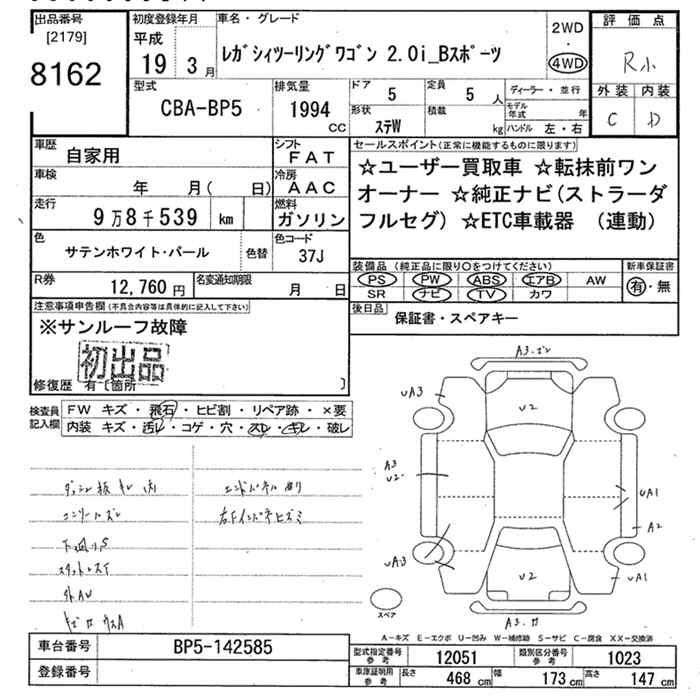 出品番号
[2179]
8162
初度登録年月
平成
19 3月
車名・グレード
レガシィツーリングワゴン 2.0i_Bスポーツ
2WD
・
4WD
評価点
R小
外装 内装
C D
型式
CBA-BP5
排気量
1994
CC
ドア
5
形状
ステW
定員
5 人
積載
kg
ディーラー・並行
モデル年式 年
ハンドル 左・右
車歴
自家用
シフト
FAT
車検
年 月( 日)
冷房
AAC
走行
9万8千539 km
燃料
ガソリン
色
サテンホワイト・パール
色替
色コード
37J
R券
12,760 円
名変通知期限
月 日
セールスポイント(正常に機能するものに限ります)
☆ユーザー買取車 ☆転抹前ワン
オーナー ☆純正ナビ(ストラーダ
フルセグ) ☆ETC車載器 (連動)
装備品 (純正品に限り○をつけてください)
PS PW ABS エアB AW
SR ナビ TV カワ
新車保証書
有・無
後日品
保証書・スペアキー
注意事項申告欄(不具合内容等は具体的に記入して下さい)
※サンルーフ故障
初出品
修復歴 有 [箇所 ]
検査員
記入欄
FW キズ・飛石・ヒビ割・リペア跡・×要
内装 キズ・汚レ・コゲ・穴・スレ・キレ・破レ
下回りS
外AW
UA3
U2
A3
U2
UA1
A2
UA3
UA1
U2
スペア
A-キズ E-エクボ U-凹み W-補修跡 S-サビ C-腐食 XX-交換済
車台番号
BP5-142585
登録番号
型式指定番号
参考
12051
類別区分番号
参考
1023
車庫証明用
参考
長さ
468 cm
幅
173 cm
高さ
147 cm